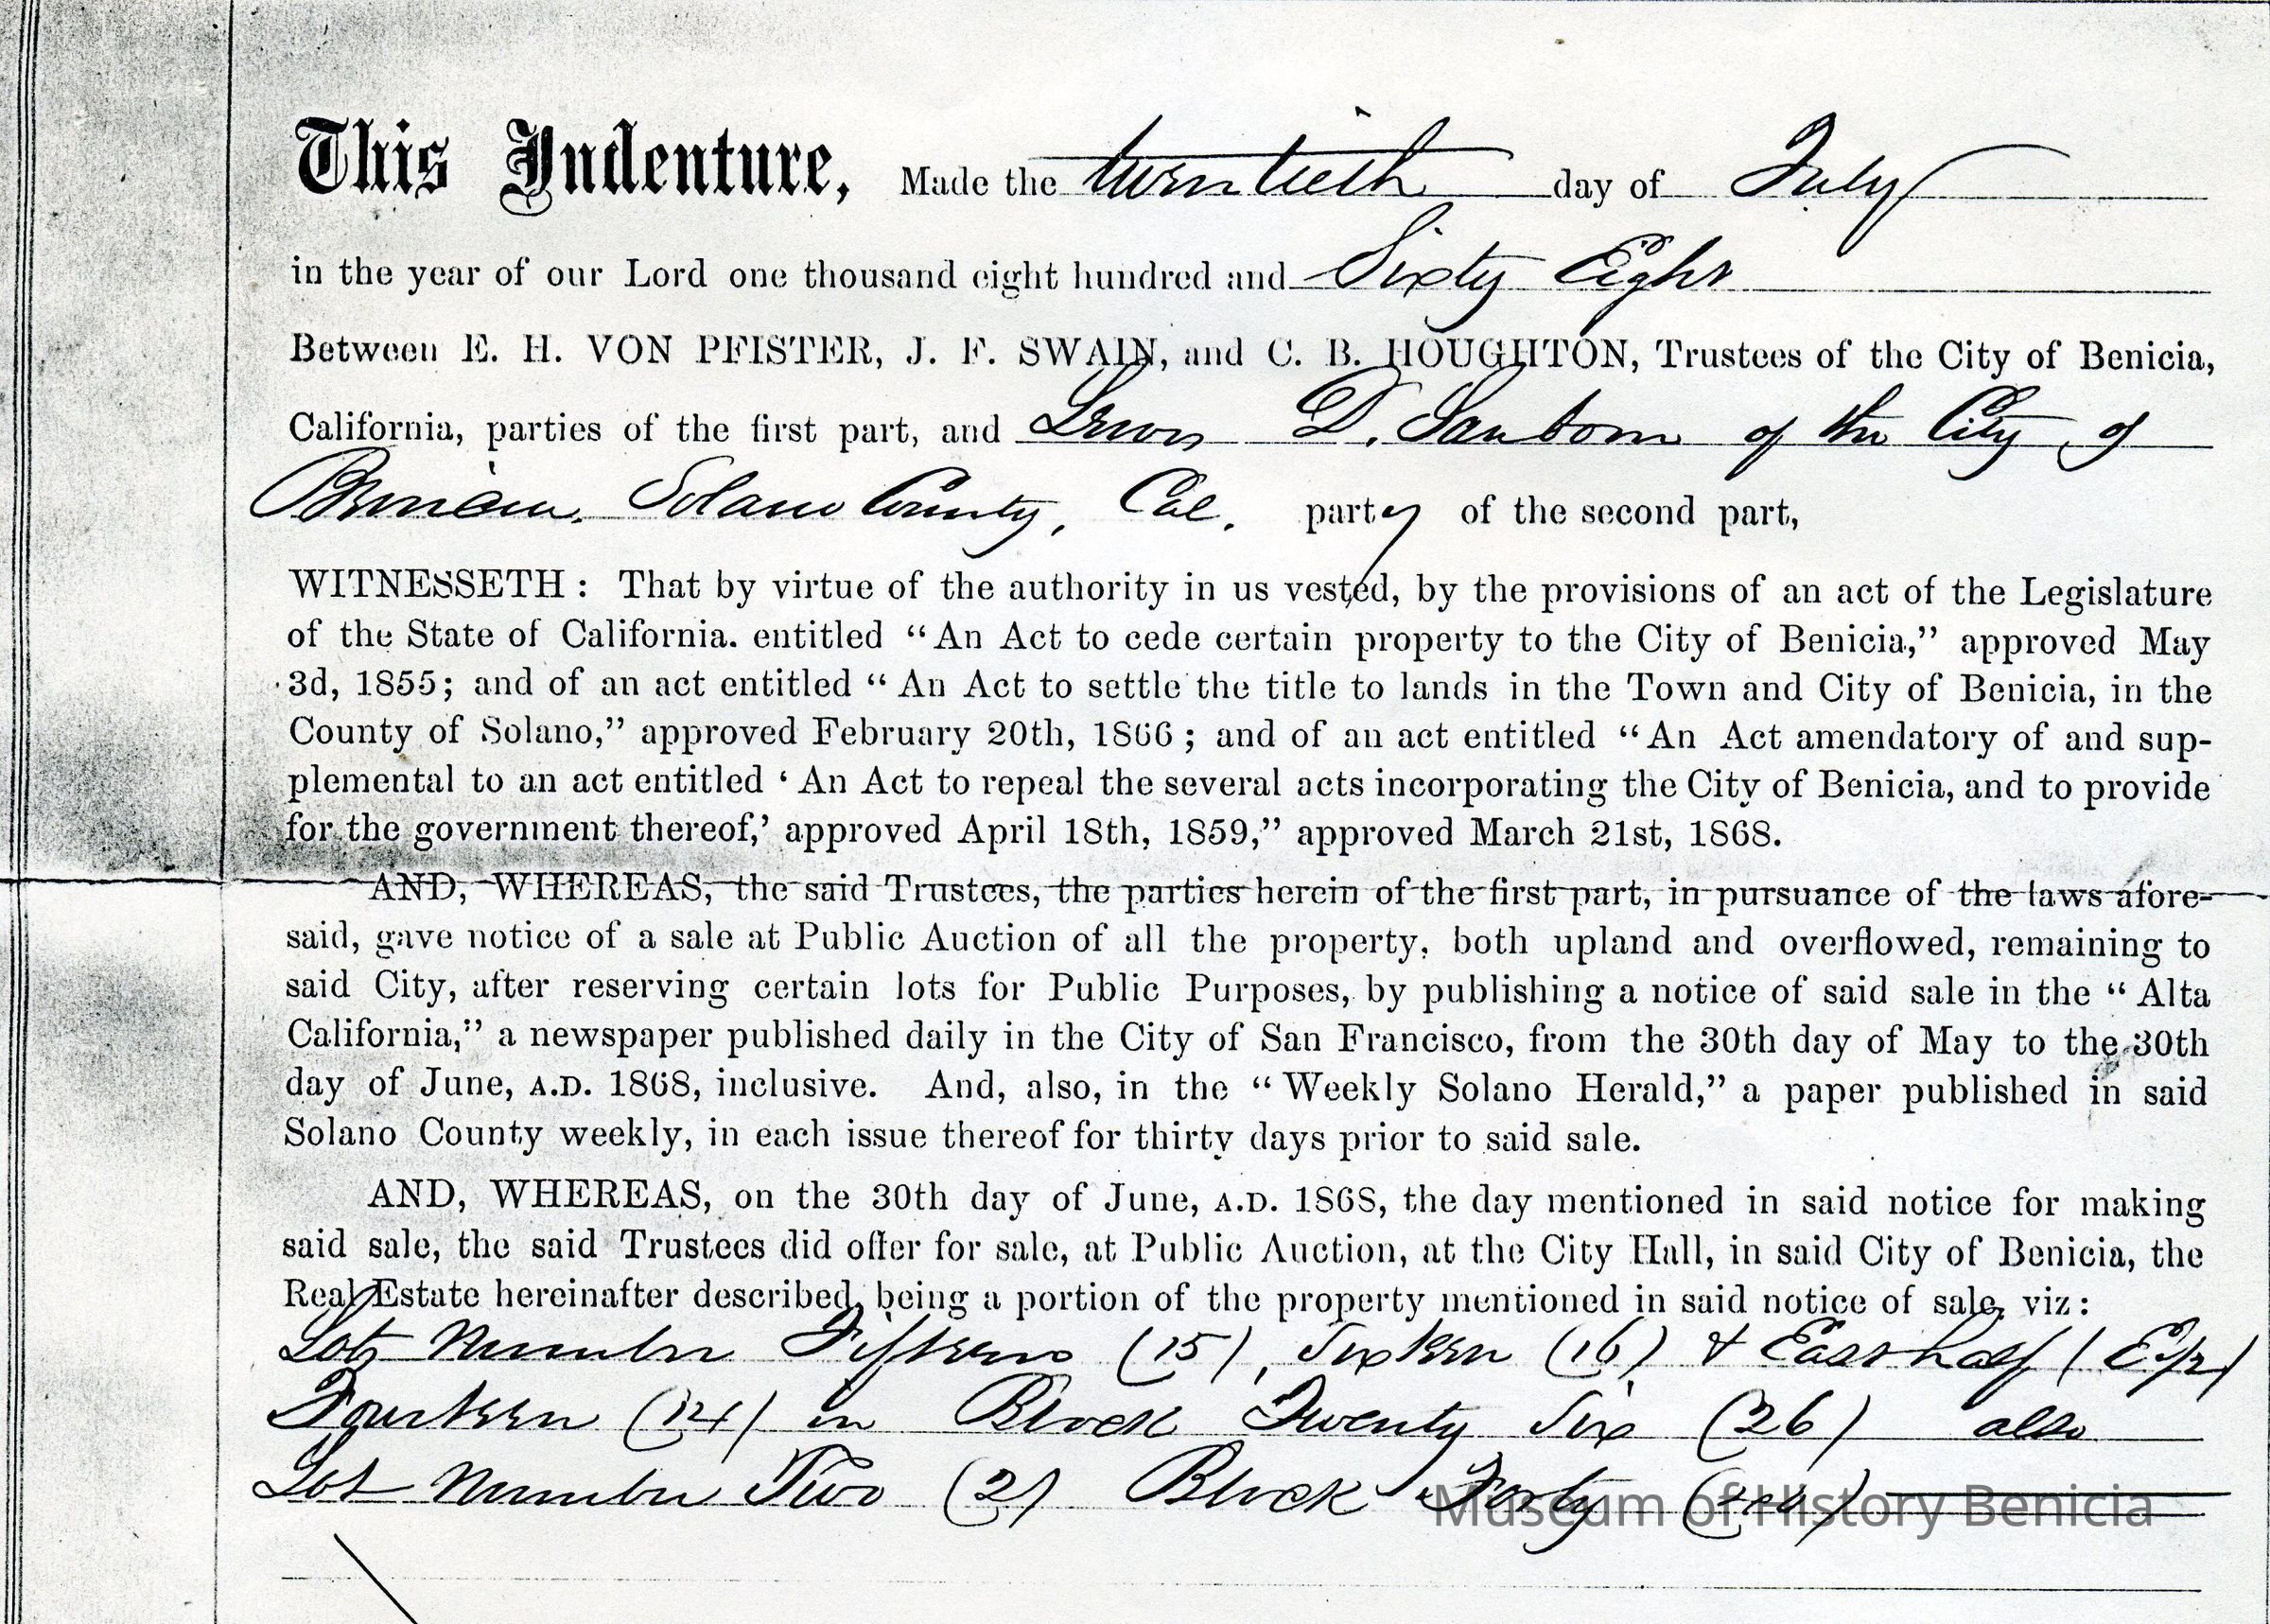 This Indenture, Made the twentieth day of July
in the year of our Lord one thousand eight hundred and Sixty Eight
Between E. H. VON PFISTER, J. F. SWAIN, and C. B. HOUGHTON, Trustees of the City of Benicia,
California, parties of the first part, and Lewis D. Sanborn of the City of
Benicia, Solano County, Cal. party of the second part,
WITNESSETH : That by virtue of the authority in us vested, by the provisions of an act of the Legislature
of the State of California. entitled “An Act to cede certain property to the City of Benicia,” approved May
3d, 1855; and of an act entitled “ An Act to settle the title to lands in the Town and City of Benicia, in the
County of Solano,” approved February 20th, 1866 ; and of an act entitled “An Act amendatory of and sup-
plemental to an act entitled ‘ An Act to repeal the several acts incorporating the City of Benicia, and to provide
for the government thereof,’ approved April 18th, 1859,” approved March 21st, 1868.
AND, WHEREAS, the said Trustees, the parties herein of the first part, in pursuance of the laws afore-
said, gave notice of a sale at Public Auction of all the property, both upland and overflowed, remaining to
said City, after reserving certain lots for Public Purposes, by publishing a notice of said sale in the “ Alta
California,” a newspaper published daily in the City of San Francisco, from the 30th day of May to the 30th
day of June, A.D. 1868, inclusive. And, also, in the “ Weekly Solano Herald,” a paper published in said
Solano County weekly, in each issue thereof for thirty days prior to said sale.
AND, WHEREAS, on the 30th day of June, A.D. 1868, the day mentioned in said notice for making
said sale, the said Trustees did offer for sale, at Public Auction, at the City Hall, in said City of Benicia, the
Real Estate hereinafter described, being a portion of the property mentioned in said notice of sale, viz :
Lots Number Fifteen (15), Sixteen (16) & East half (E 1/2)
Fourteen (14) in Block Twenty Six (26) also
Lot Number Two (2) Block Forty (40)
Museum of History Benicia